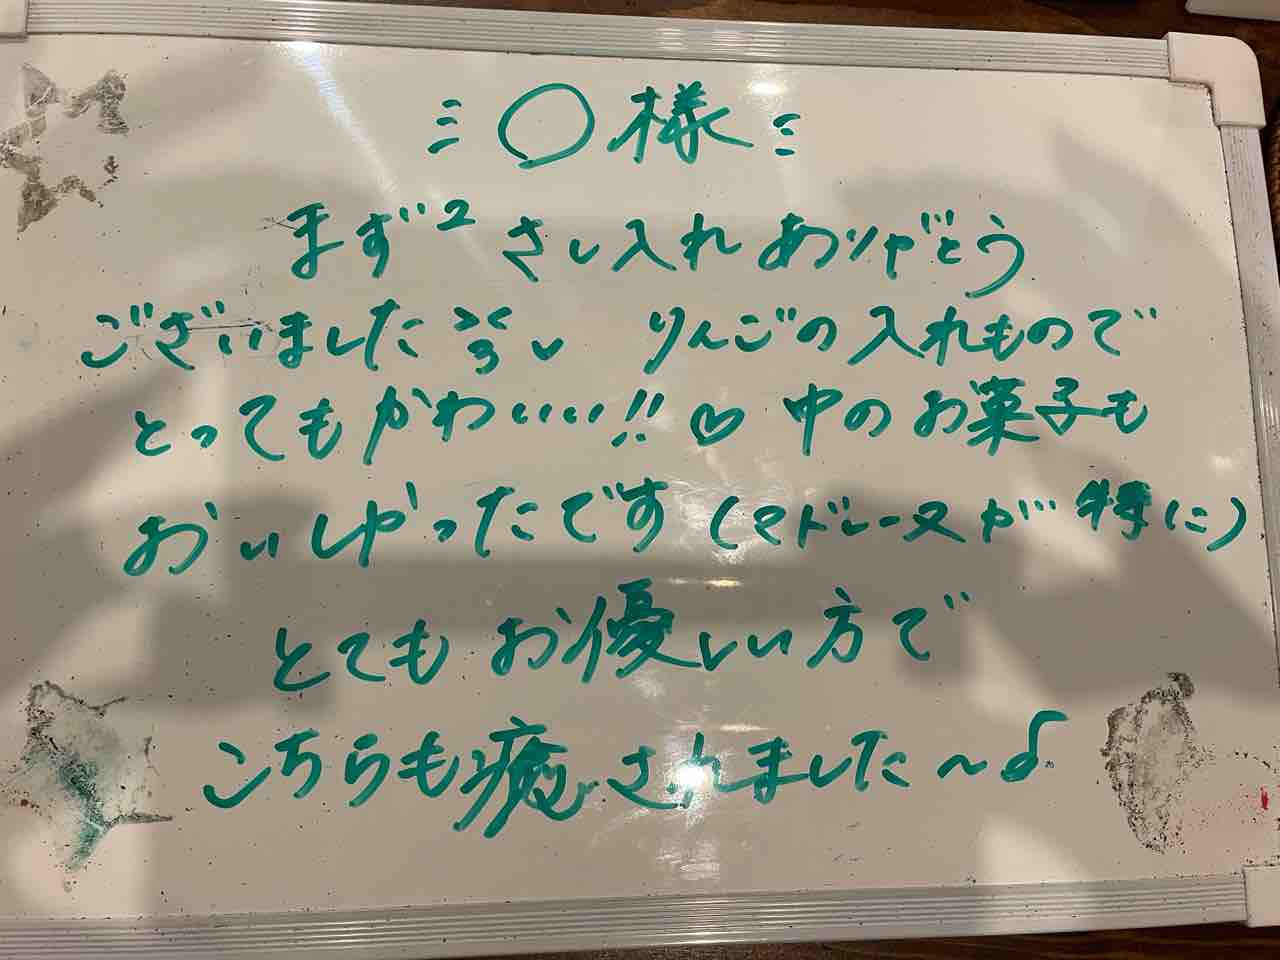 〇様
まず² さし入れありがとう
ございました ><３ ♥ りんごの入れもので
とってもかわいいい!! ♡ 中のお菓子も
おいしかったです (マドレーヌが特に)
とてもお優しい方で
こちらも癒されました〜♪